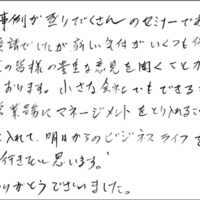 事例が盛りだくさんのセミナーでお
講でしたが新しい気付がいくつも
の皆様の貴重な意見を聞くことが
おります。小さな会社でもできる
営業部にマネージメントをとり入れること
入れて、明日からのビジネスライフを
行きたい思います。
りがとうございました。